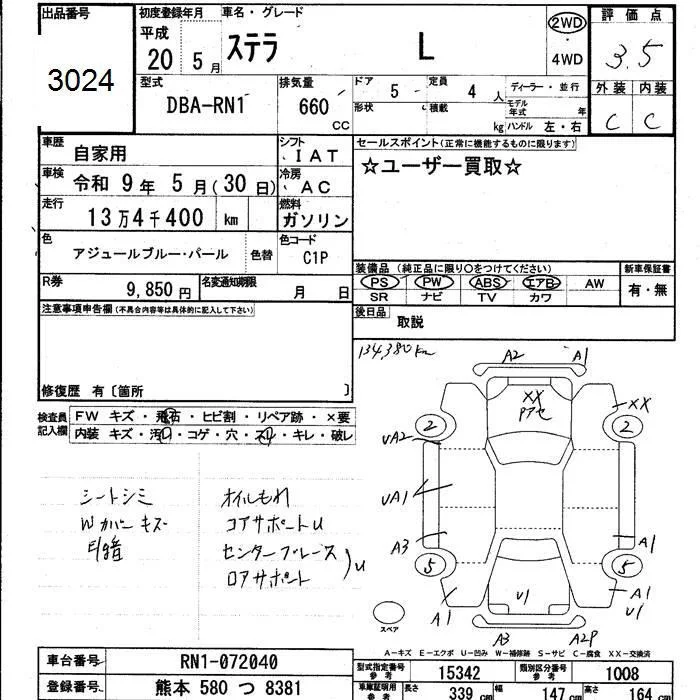 出品番号
3024
初度登録年月
平成
20 5月
車名・グレード
ステラ L
2WD
4WD
評価点
3.5
外装 内装
C C
型式
DBA-RN1
排気量
660
CC
ドア 5
定員 4人
形状
積載 kg
ディーラー・並行
モデル年式 年
ハンドル 左・右
車歴
自家用
シフト
IAT
車検
令和 9年 5月(30日)
冷房
AC
走行
13万4千400 km
燃料
ガソリン
色
アジュールブルー・パール
色替
色コード
C1P
R券
9,850円
名変通知期限
月 日
セールスポイント(正常に機能するものに限ります)
☆ユーザー買取☆
装備品(純正品に限り○をつけてください)
PS PW ABS エアB AW
SR ナビ TV カワ
新車保証書
有・無
後日品
取説
注意事項申告欄(不具合内容等は具体的に記入して下さい)
修復歴 有〔箇所 〕
検査員
記入欄
FW キズ・飛石・ヒビ割・リペア跡・×要
内装 キズ・汚レ・コゲ・穴・スレ・キレ・破レ
シートシミ
Wカバーキズ
オイルもれ
コアサポートU
センターブレース
ロアサポート
U
134,380km
A2 A1
XX
Pアセ
XX
2 2
UA2
UA1
A3 A1
5 5
A1 U1 A1
U1
A3 A2P
スペア
A-キズ E-エクボ U-凹み W-補修跡 S-サビ C-腐食 XX-交換済
車台番号
RN1-072040
登録番号
熊本 580 つ 8381
型式指定番号
参考
15342
類別区分番号
参考
1008
車庫証明用
参考
長さ 339 cm
幅 147 cm
高さ 164 cm